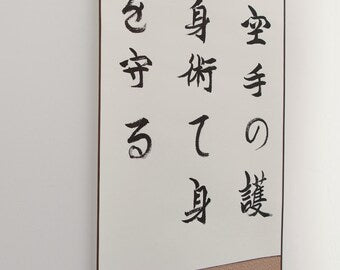 空手の護
身術て身
を守る